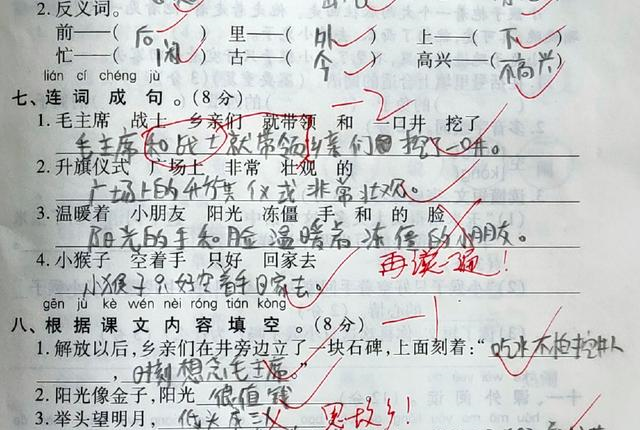 2.反义词。
前——( 后 ) 里——( 外 ) 上——( 下 )
忙——( 闲 ) 古——( 今 ) 高兴——( 不高兴 )
lián cí chéng jù
七、连词成句。(8分) -2
1.毛主席 战士 乡亲们 就带领 和 一口井 挖了
毛主席和战士就带领乡亲们挖了一口井。
2.升旗仪式 广场上 非常 壮观 的
广场上的升旗仪式非常壮观。
3.温暖着 小朋友 阳光 冻僵 手 和 的 脸
阳光的手和脸温暖着冻僵的小朋友。
4.小猴子 空着手 只好 回家去 再读一遍!
小猴子只好空着手回家去。
gēn jù kè wén nèi róng tián kòng
八、根据课文内容填空。(8分) -1
1.解放以后,乡亲们在井旁边立了一块石碑,上面刻着:“吃水不忘挖井人
,时刻想念毛主席。”
2.阳光像金子,阳光 很值钱
3.举头望明月, 低头 思故乡!